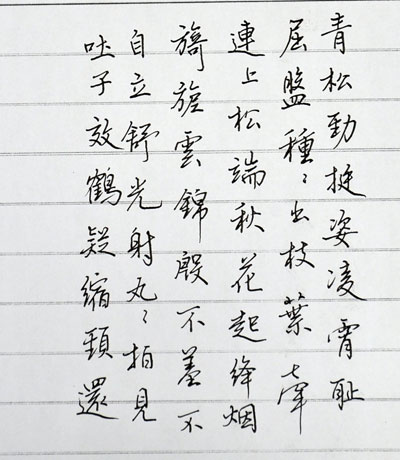 青松勁挺姿凌霄耻
屈盤種〻出枝葉牽
連上松端秋花起絳烟
旖旎雲錦殷不羞不
自立舒光射丸〻柏見
吐子效鶴疑縮頸還